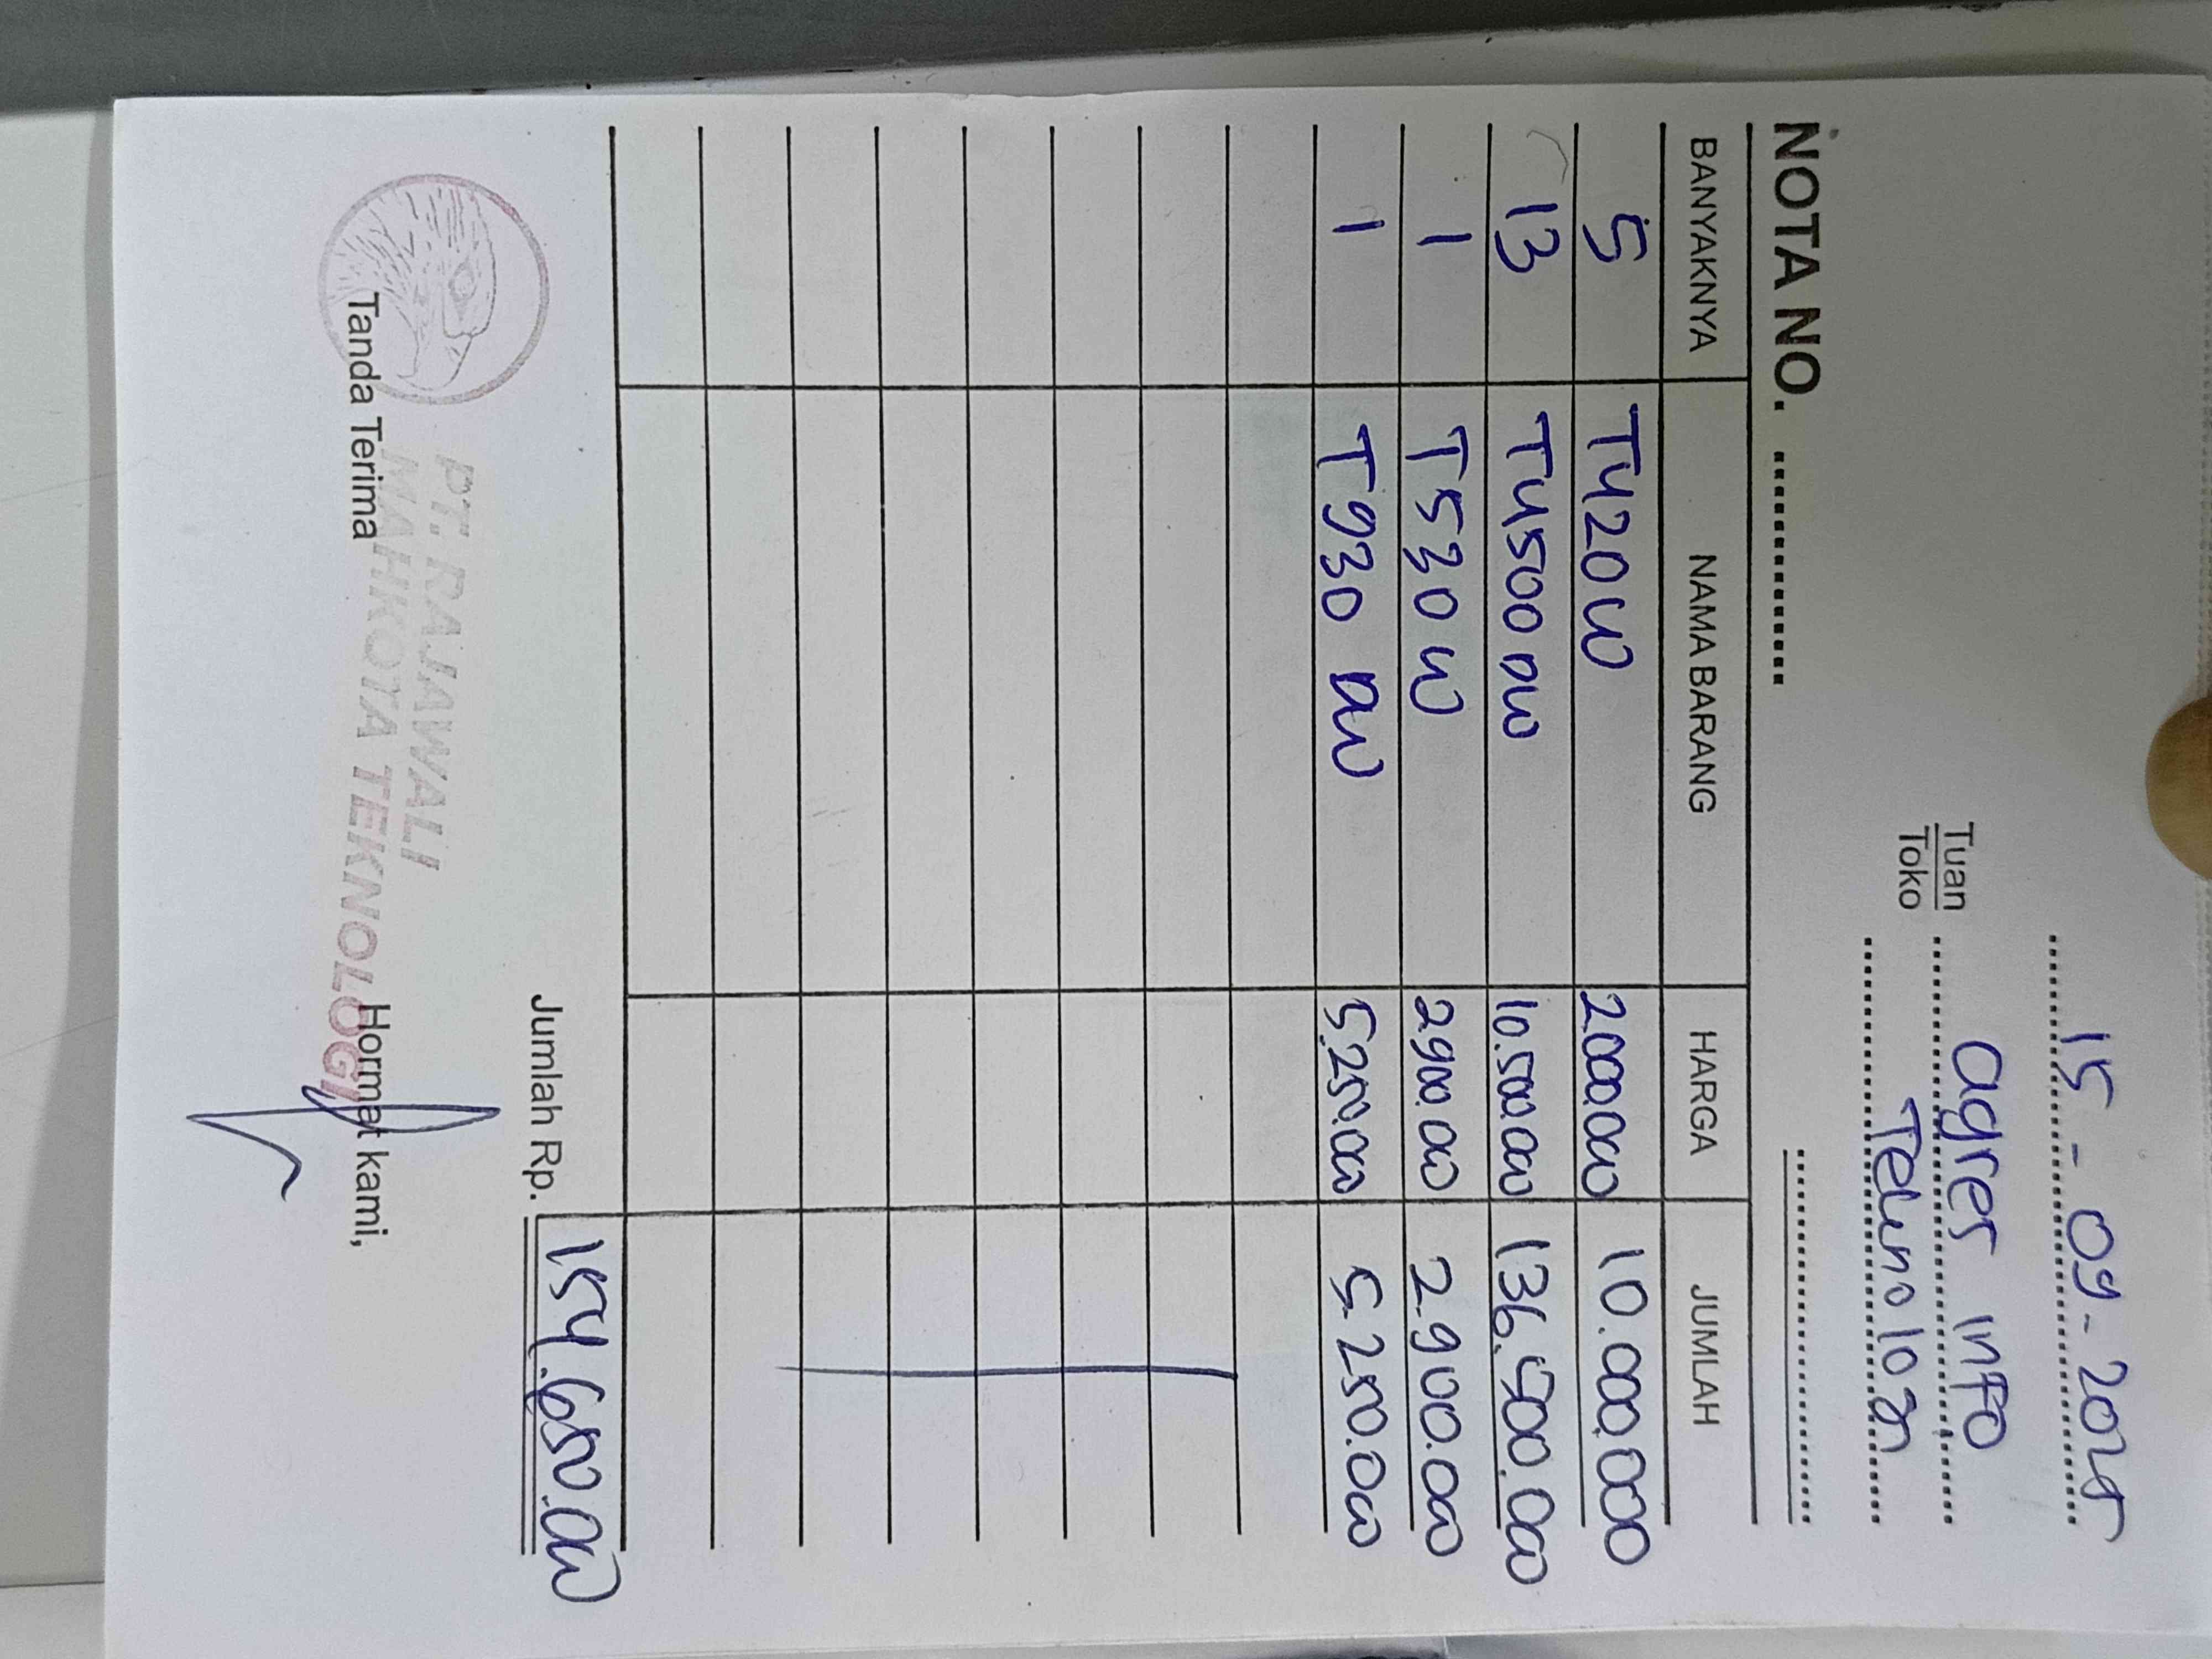 15 - 09 - 2025
Tuan agres info
Toko
NOTA NO.
BANYAKNYA NAMA BARANG HARGA JUMLAH
5 T420W 2000.000 10.000.000
13 T4500DW 10.500.000 136.500.000
1 T530W 2900.000 2.900.000
1 T930DW 5.250.000 5.250.000
Jumlah Rp. 154.650.000
Tanda Terima Hormat kami,
PT. RAJAWALI
MAHKOTA TEKNOLOGI